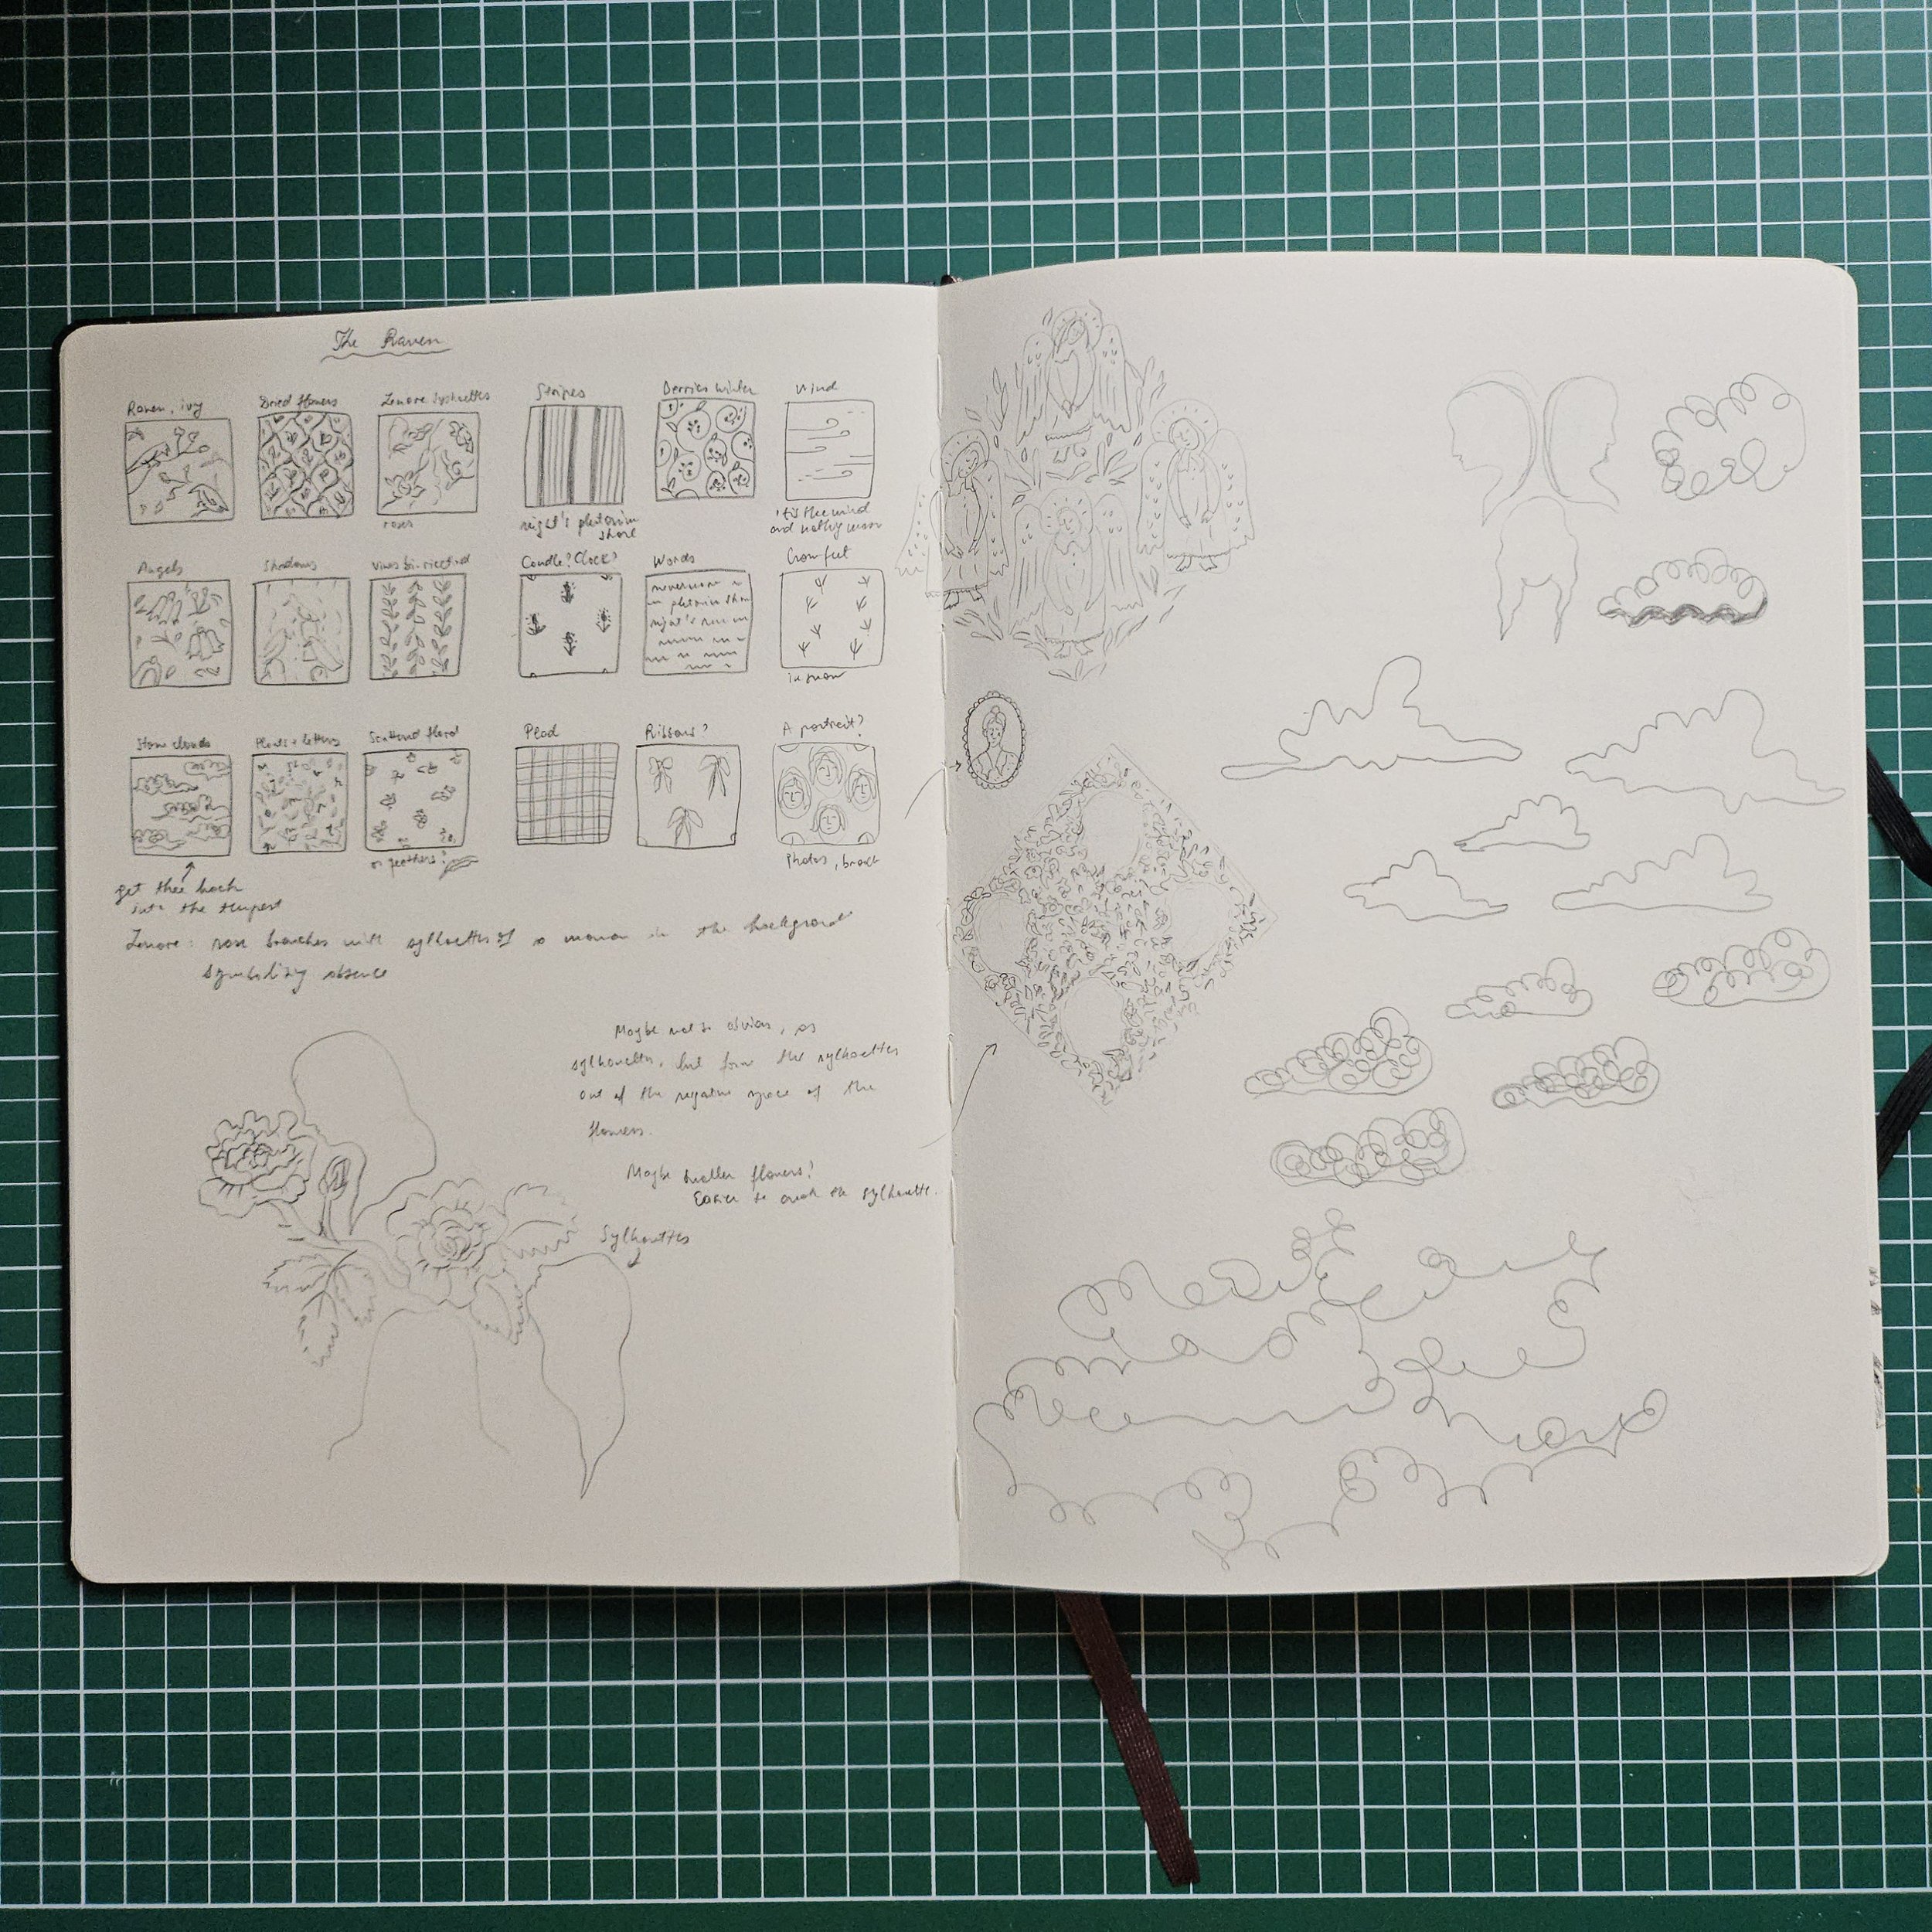 The Raven
Raven, ivy
Dried flowers
Lenore, Sylhouettes
Stripes
Berries winter
Wind
roses
night's plutonian
shore
'tis the wind
and nothing more
Angels
Shadows
Vines
Candle? Clock?
Words
Crow feet
nevermore
in snow
Storm clouds
Plants + letters
Scattered floral
Plead
Ribbons?
A portrait?
or feathers?
Photos, broach
get thee back
into the tempest
Lenore: rose branches with sylhouettes of a woman in the background
symbolizing absence
Maybe not so obvious, as
sylhouettes, but form the sylhouettes
out of the negative space of the
flowers.
Maybe smaller flowers?
Easier to create the sylhouette.
Sylhouettes